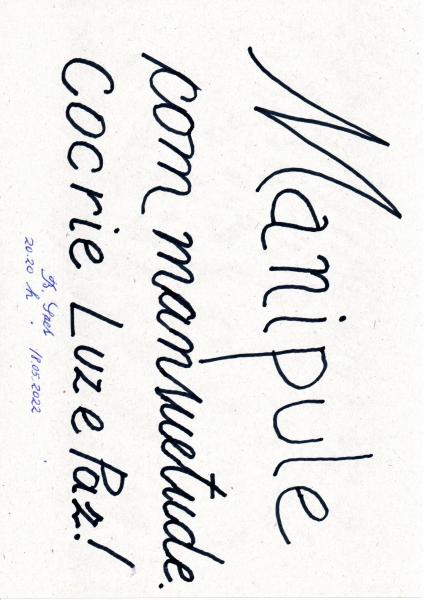 Manipule
com mansuetude.
Cocrie Luz e Paz!
18.05.2022
20:20 h.